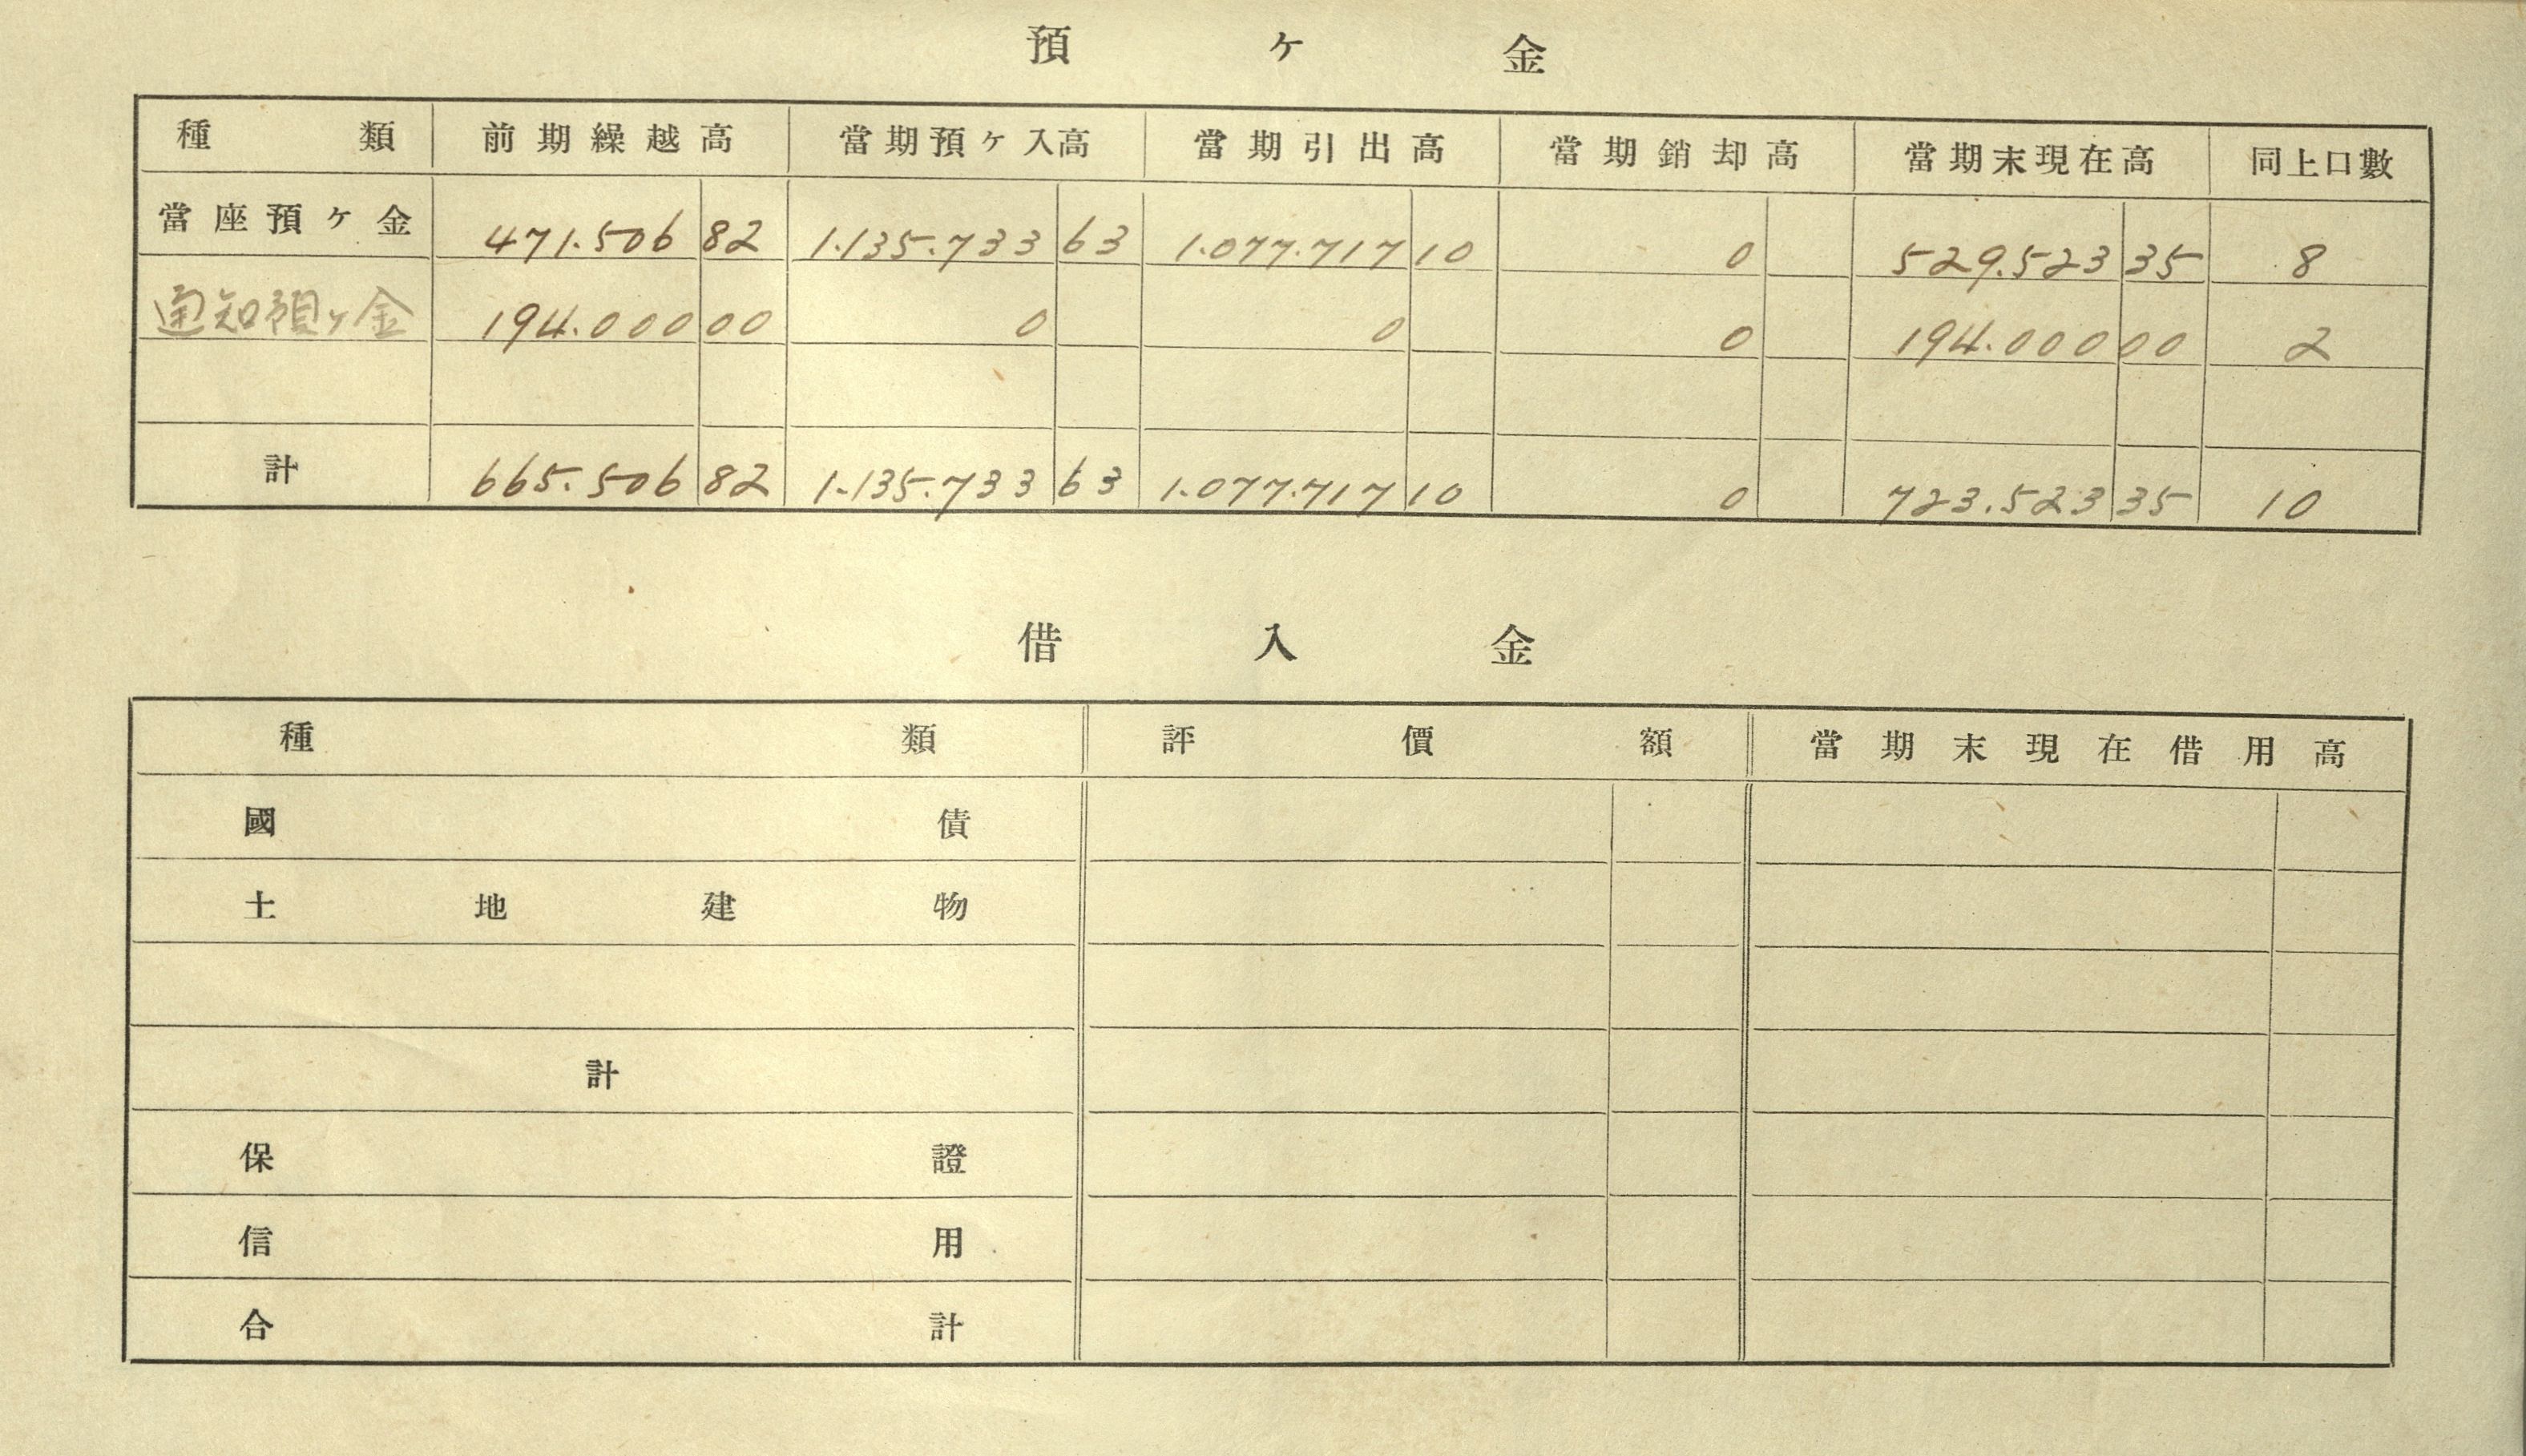 預ケ金
種類 前期繰越高 當期預ケ入高 當期引出高 當期銷却高 當期末現在高 同上口數
當座預ケ金 471.506 82 1.135.733 63 1.077.717 10 0 529.523 35 8
通知預ケ金 194.000 00 0 0 0 194.000 00 2
計 665.506 82 1.135.733 63 1.077.717 10 0 723.523 35 10
借入金
種類 評價額 當期末現在借用高
國債
土地建物
計
保證
信用
合計